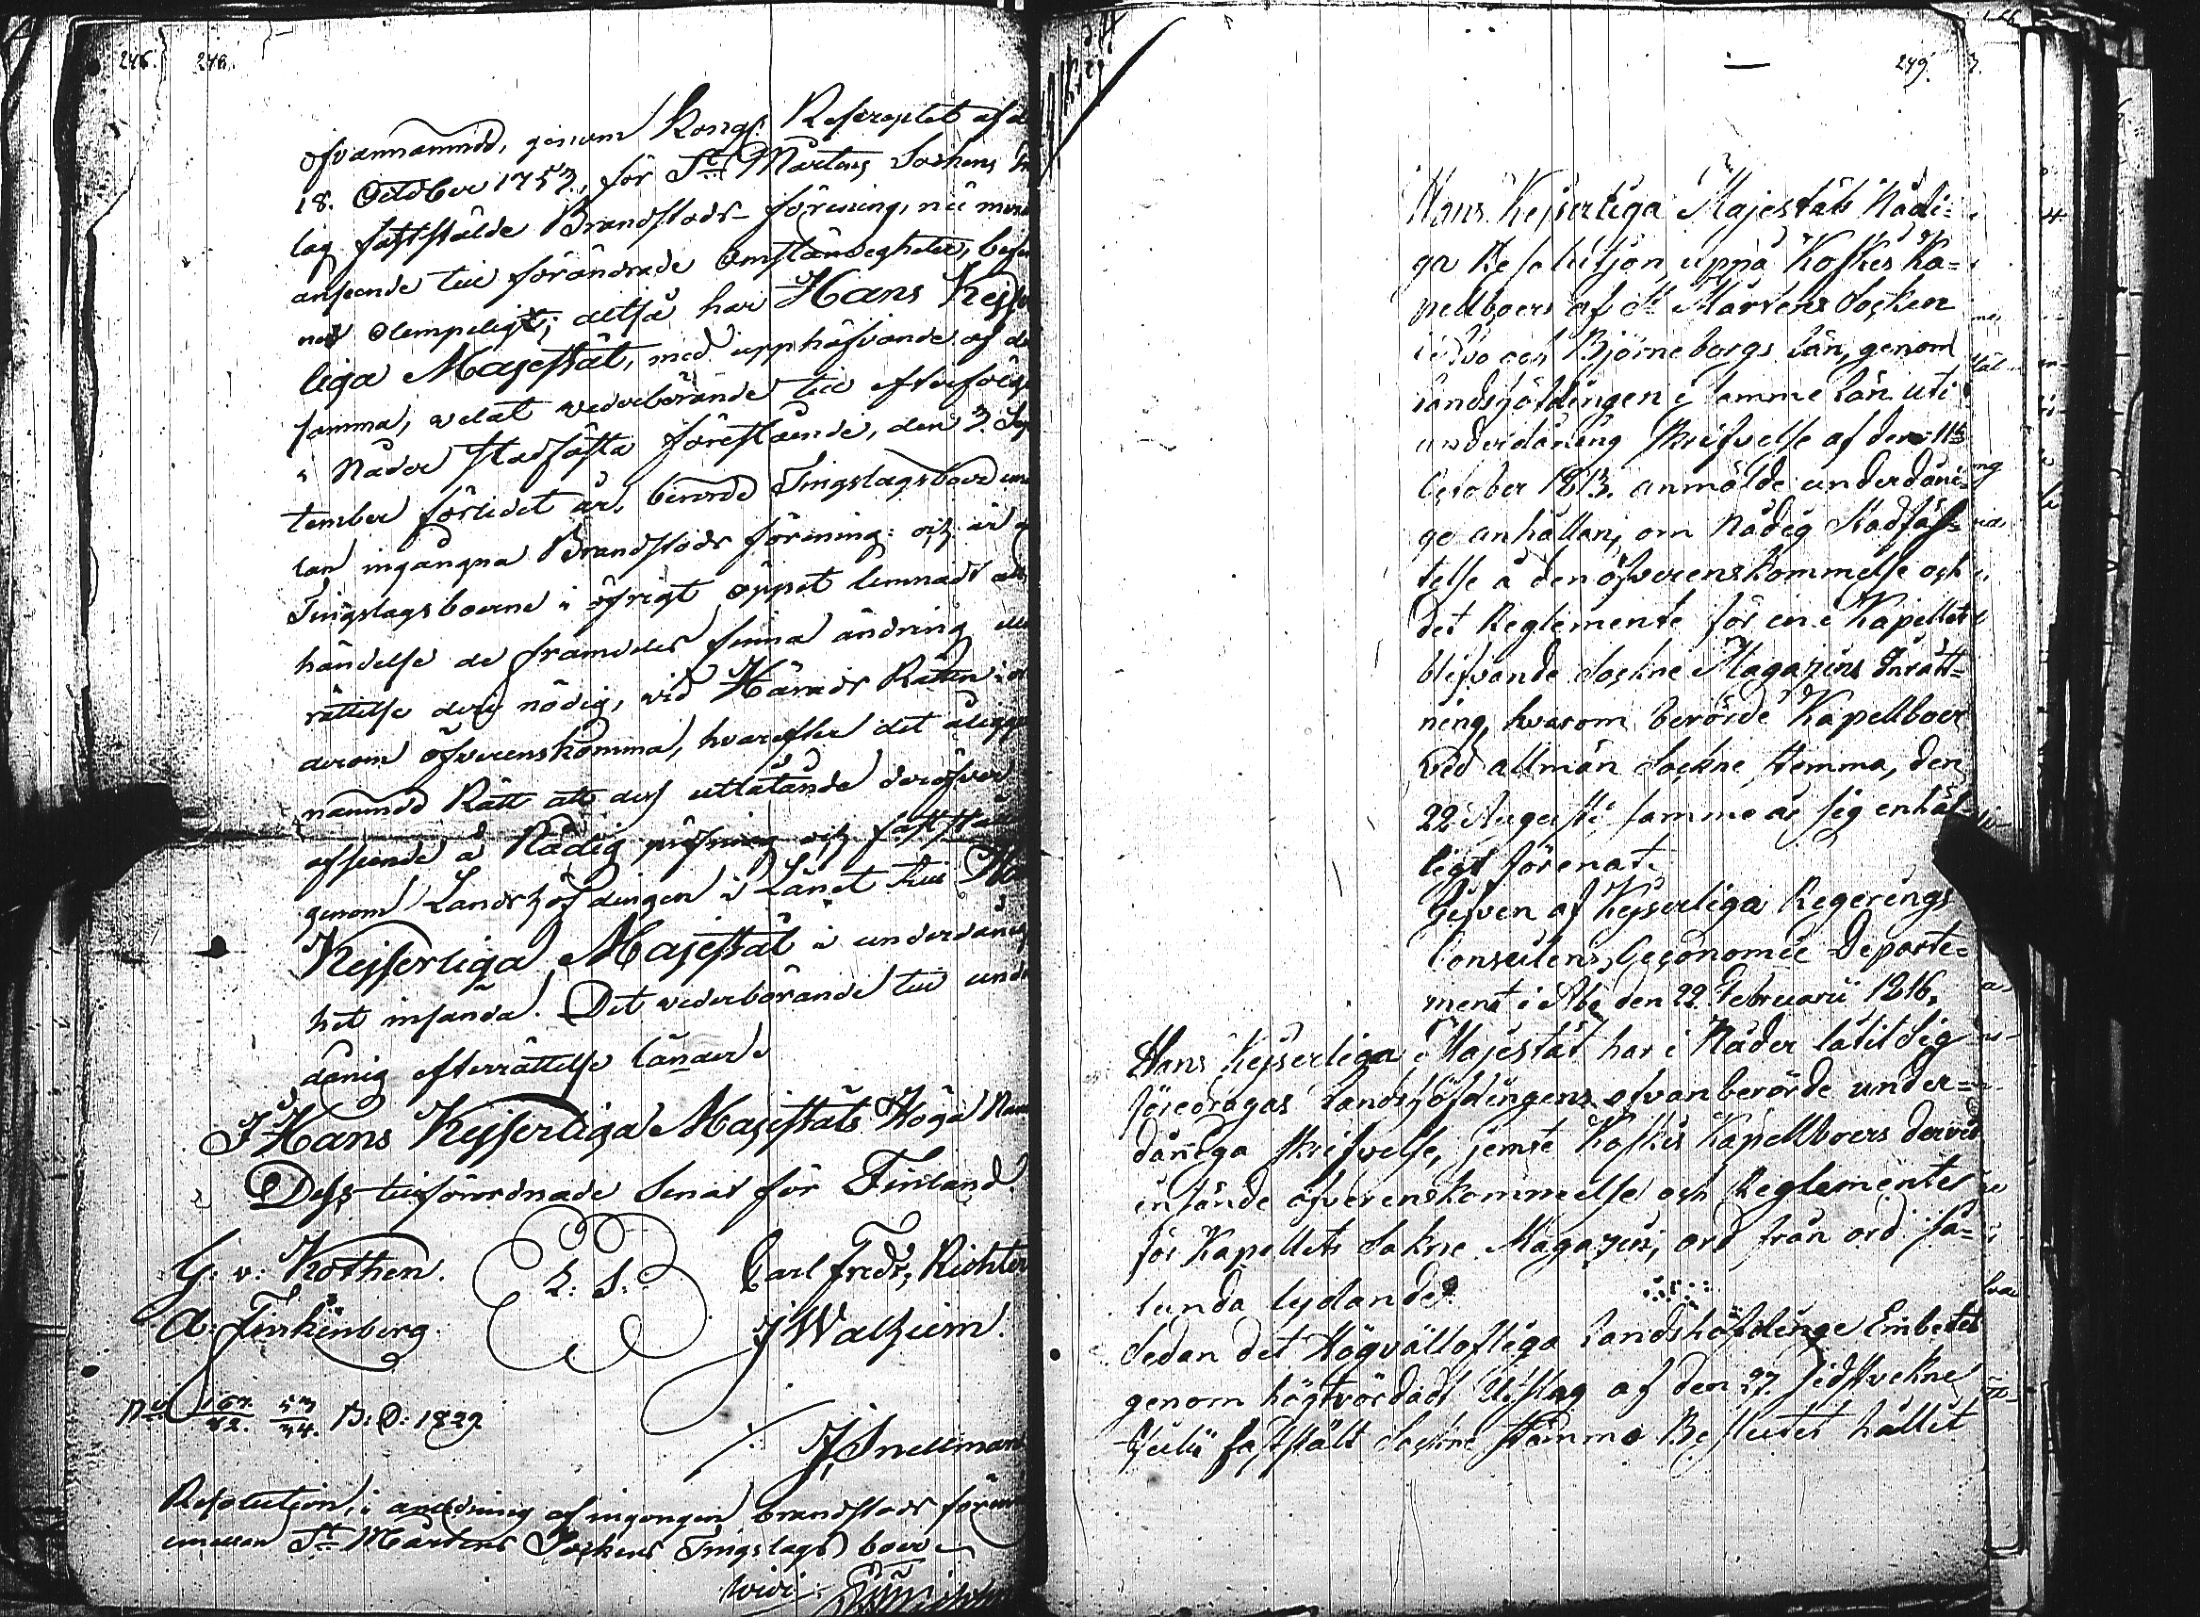 246. 248.
ofvannämnd, genom Kongl. Rescriptet af d
18. October 1753, för S:t Mårtens Sockens
lag fastställde Brandstods-förening, nu mera
anseende till förändrade Omständigheter, befu
nits olempeligt; altså har Hans Kejser
liga Majestät, med upphäfvande af den
samma, velat vederbörande till efterföljd
i Nåder stadfästa förestående, den 3. Sep
tember förledet år, berörde Tingslagsboer em
lan ingångna Brandstods förening: och är
Tingslagsboerne i öfrigt öppet lemnadt att
händelse de framdeles finna ändring ell
rättelse deri nödig, vid Härads Rätten
derom öfverenskomma, hvarefter det åligger
nämnd Rätt att dess utlåtande deröfver
afseende å Nådig pröfning och faststäl
genom Landshöfdingen i Länet till Ha
Kejserliga Majestät i underdånig
het insända. Det vederbörande till unde
dånig efterrättelse länder.
I Hans Kejserliga Majestäts Höga Namn
Dess tillförordnade Senat för Finland.
G. v: Kothen. L: S: Carl Fredr. Richter
A: Finkenberg. J Walheim.
N:o 167/42. 53/34. B: D: 1829.
J, Snellman
Resolution, i anledning af ingången brandstods fören
emellan S:t Mårtens Sockens Tingslags boer
Wivi
249.
Hans Kejserliga Majestäts Nådi=
ga Resolutjon uppå Koskis Ka=
pellboers af S:t Mårtens Socken
i Åbo och Björneborgs Län, genom
Landshöfdingen i samme Län uti
underdånig skrifvelse af den 11te
October 1813. anmälde underdåni=
ge anhållan, om Nådig Stadfäs=
telse å den öfverenskommelse och
det Reglemente för en i Kapellet
blifvande Sockne Magazins Inrätt=
ning, hvarom berörde Kapellboer
vid allmän Sockne stemma, den
22 Augusti samme år sig enhäl
ligt förenat.
Gifven af Kejserliga Regerings
Conseilens Oeconomie Departe=
ment i Åbo den 22 Februarii 1816,
Hans Kejserliga Majestät har i Nåder låtit Sig
föredragas Landshöfdingens ofvanberörde under=
dåniga skrifvelse, jemte Koskis Kapellboers dervid
insände öfverenskommelse och Reglementet
för Kapellets Sokne Magazin, ord från ord så=
lunda lydande:
Sedan det Högvällofliga Landshöfdinge Embetet
genom högtvördadt Utslag af den 27. sidstvekne
Julii faststält Sockne stämmo Beslutet hållit